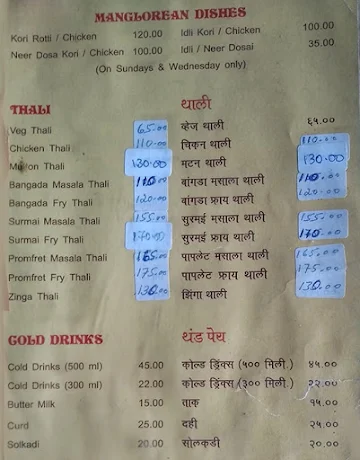 MANGLOREAN DISHES
Kori Rotti / Chicken 120.00 Idli Kori / Chicken 100.00
Neer Dosa Kori / Chicken 100.00 Idli / Neer Dosai 35.00
(On Sundays & Wednesday only)
THALI थाली
Veg Thali 65.00 व्हेज थाली ६५.००
Chicken Thali 110.00 चिकन थाली 110.00
Mutton Thali 130.00 मटन थाली 130.00
Bangada Masala Thali 110.00 बांगडा मसाला थाली 110.00
Bangada Fry Thali 120.00 बांगडा फ्राय थाली 120.00
Surmai Masala Thali 155.00 सुरमई मसाला थाली 155.00
Surmai Fry Thali 170.00 सुरमई फ्राय थाली 170.00
Promfret Masala Thali 165.00 पापलेट मसाला थाली 165.00
Promfret Fry Thali 175.00 पापलेट फ्राय थाली 175.00
Zinga Thali 130.00 झिंगा थाली 130.00
COLD DRINKS थंड पेय
Cold Drinks (500 ml) 45.00 कोल्ड ड्रिंक्स (५०० मिली.) ४५.००
Cold Drinks (300 ml) 22.00 कोल्ड ड्रिंक्स (३०० मिली.) २२.००
Butter Milk 15.00 ताक १५.००
Curd 25.00 दही २५.००
Solkadi 20.00 सोलकडी २०.००